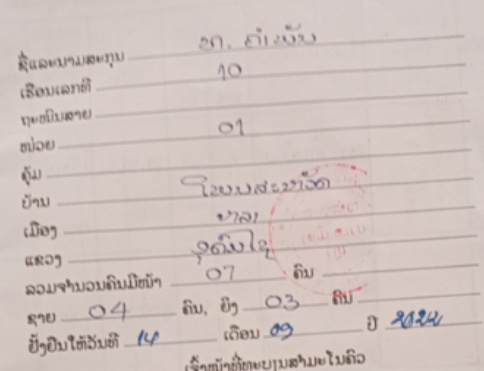 ຊື່ແລະນາມສະກຸນ ທ. ຄຳພັນ
ເຮືອນເລກທີ 10
ຖະໜົນສາຍ
ໜ່ວຍ 01
ຄຸ້ມ
ບ້ານ
ເມືອງ
ແຂວງ ອຸດົມໄຊ
ລວມຈຳນວນຄົນມີໜ້າ 07 ຄົນ
ຊາຍ 04 ຄົນ, ຍິງ 03 ຄົນ
ຢັ້ງຢືນໃຫ້ວັນທີ 14 ເດືອນ 09 ປີ 2022
ເຈົ້າໜ້າທີ່ທະບຽນສຳມະໂນຄົວ